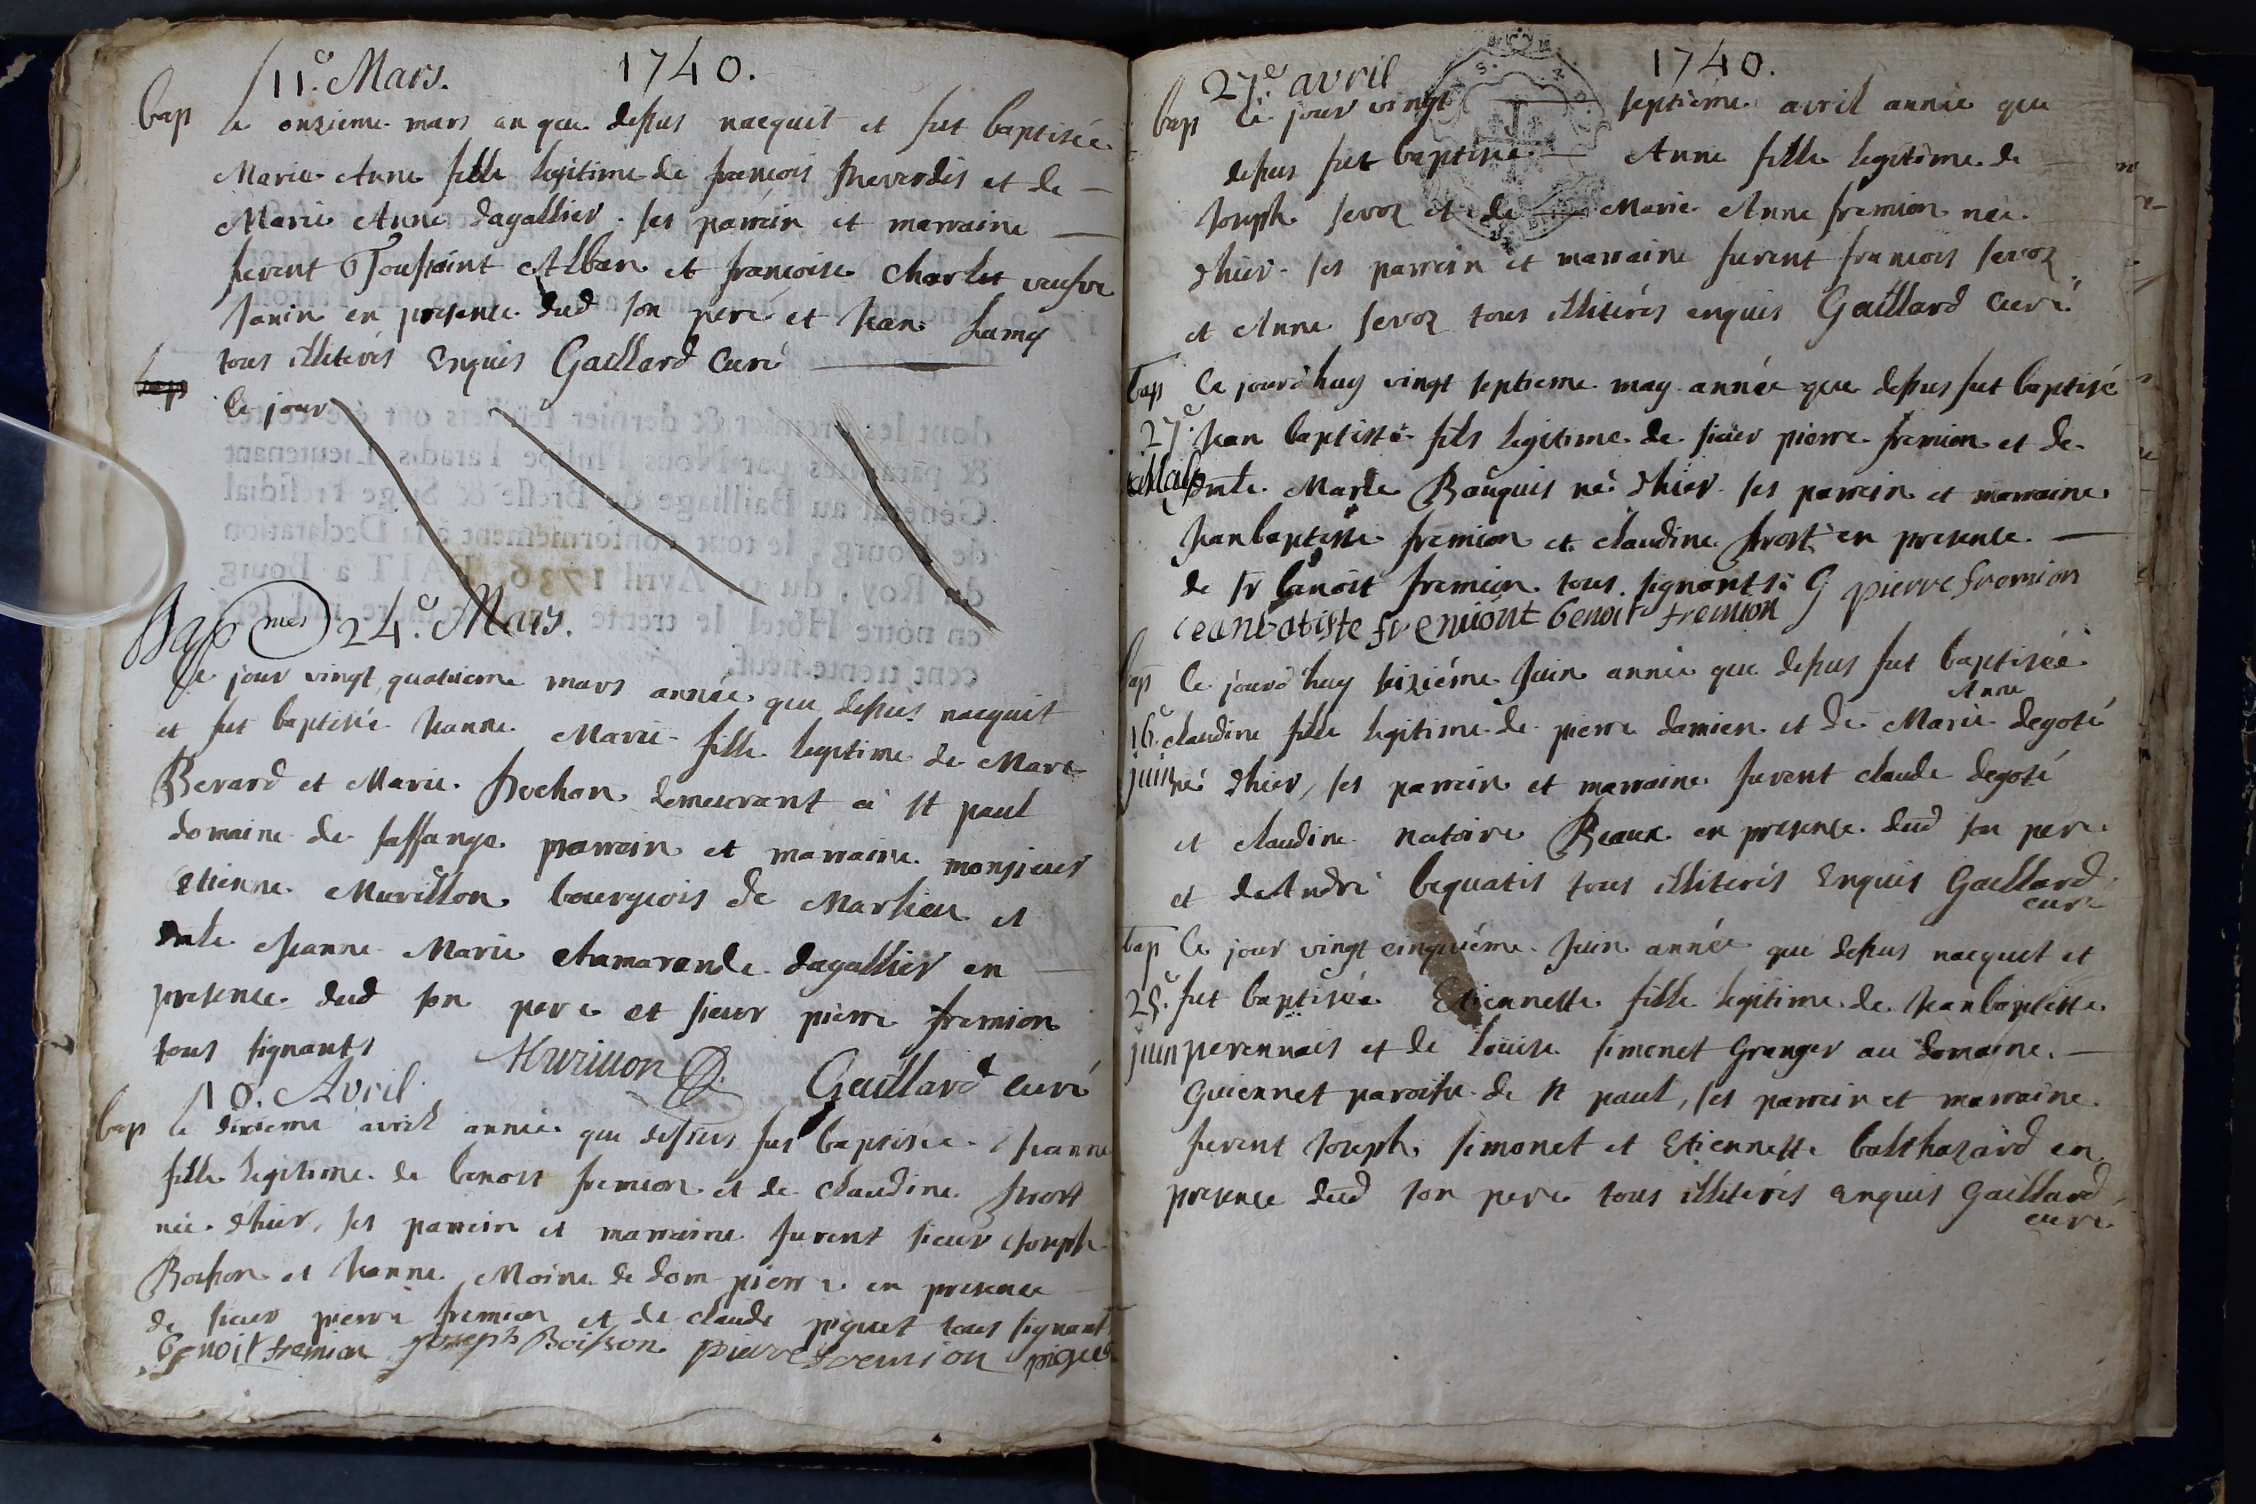 11.e Mars. 1740.
bap le onzieme mars an que dessus nacquit et fut baptisée
Marie Anne fille legitime de françois et de
Marie Anne dagallier ses parrein et marraine
furent Toussaint Alban et françoise Charlet veufve
Janin en presence dud son pere et Jean Lamy
tous illiterés enquis Gaillard Curé
bap
Ce jour
Bap mes 24.e Mars.
Ce jour vingt quatrieme mars année que dessus nacquit
et fut baptisée Jeanne Marie fille legitime de Marc
Berard et Marie Bochon demeurant à St paul
domaine de parrein et marraine monsieur
Etienne Murillon bourgeois de Marlieu et
dmle Jeanne Marie Chamarande dagallier en
presence dud son pere et sieur pierre fremion
tous signants Murillon Gaillard curé
10. Avril.
bap le dixieme avril année que dessus fut baptisée Jeanne
fille legitime de benoit fremion et de Claudine prost
née d'hier, ses parrein et marraine furent sieur Joseph
Boisson et Jeanne Moine de dom pierre en presence
de sieur pierre fremion et de claude piquet tous signants
benoit fremion joseph Boisson pierre fremion piquet
27.e avril 1740.
bap Ce jour vingt septieme avril année que
dessus fut baptisée Anne fille legitime de
Joseph sevoz et de Marie Anne fremion née
d'hier ses parrein et marraine furent francois sevoz
et Anne sevoz tous illiterés enquis Gaillard Curé
bap Ce jourd'huy vingt septieme may année que dessus fut baptisé
27.e Jean baptiste fils legitime de sieur pierre fremion et de
May dmle Marie Bauguis né d'hier ses parrein et marraine
Jean baptiste fremion et claudine prost en presence
de sr benoit fremion tous signants G pierre fremion
Jeanbatiste fremiont benoit fremion
bap Ce jourd'huy seiziéme Juin année que dessus fut baptisée
Anne
16.e claudine fille legitime de pierre damien et de Marie degoté
juin né d'hier, ses parrein et marraine furent claude degoté
et claudine natoire Beaux en presence dud son pere
et de André bequatis tous illiterés Enquis Gaillard
curé
bap Ce jour vingt cinquiéme Juin année que dessus nacquet et
25.e fut baptisée Etiennette fille legitime de Jean baptiste
juin perennais et de Louise simonet Granger au domaine
Guiennet paroisse de St paul, ses parrein et marraine
furent Joseph simonet et Etiennette balthazard en
presence dud son pere tous illiterés enquis Gaillard
curé